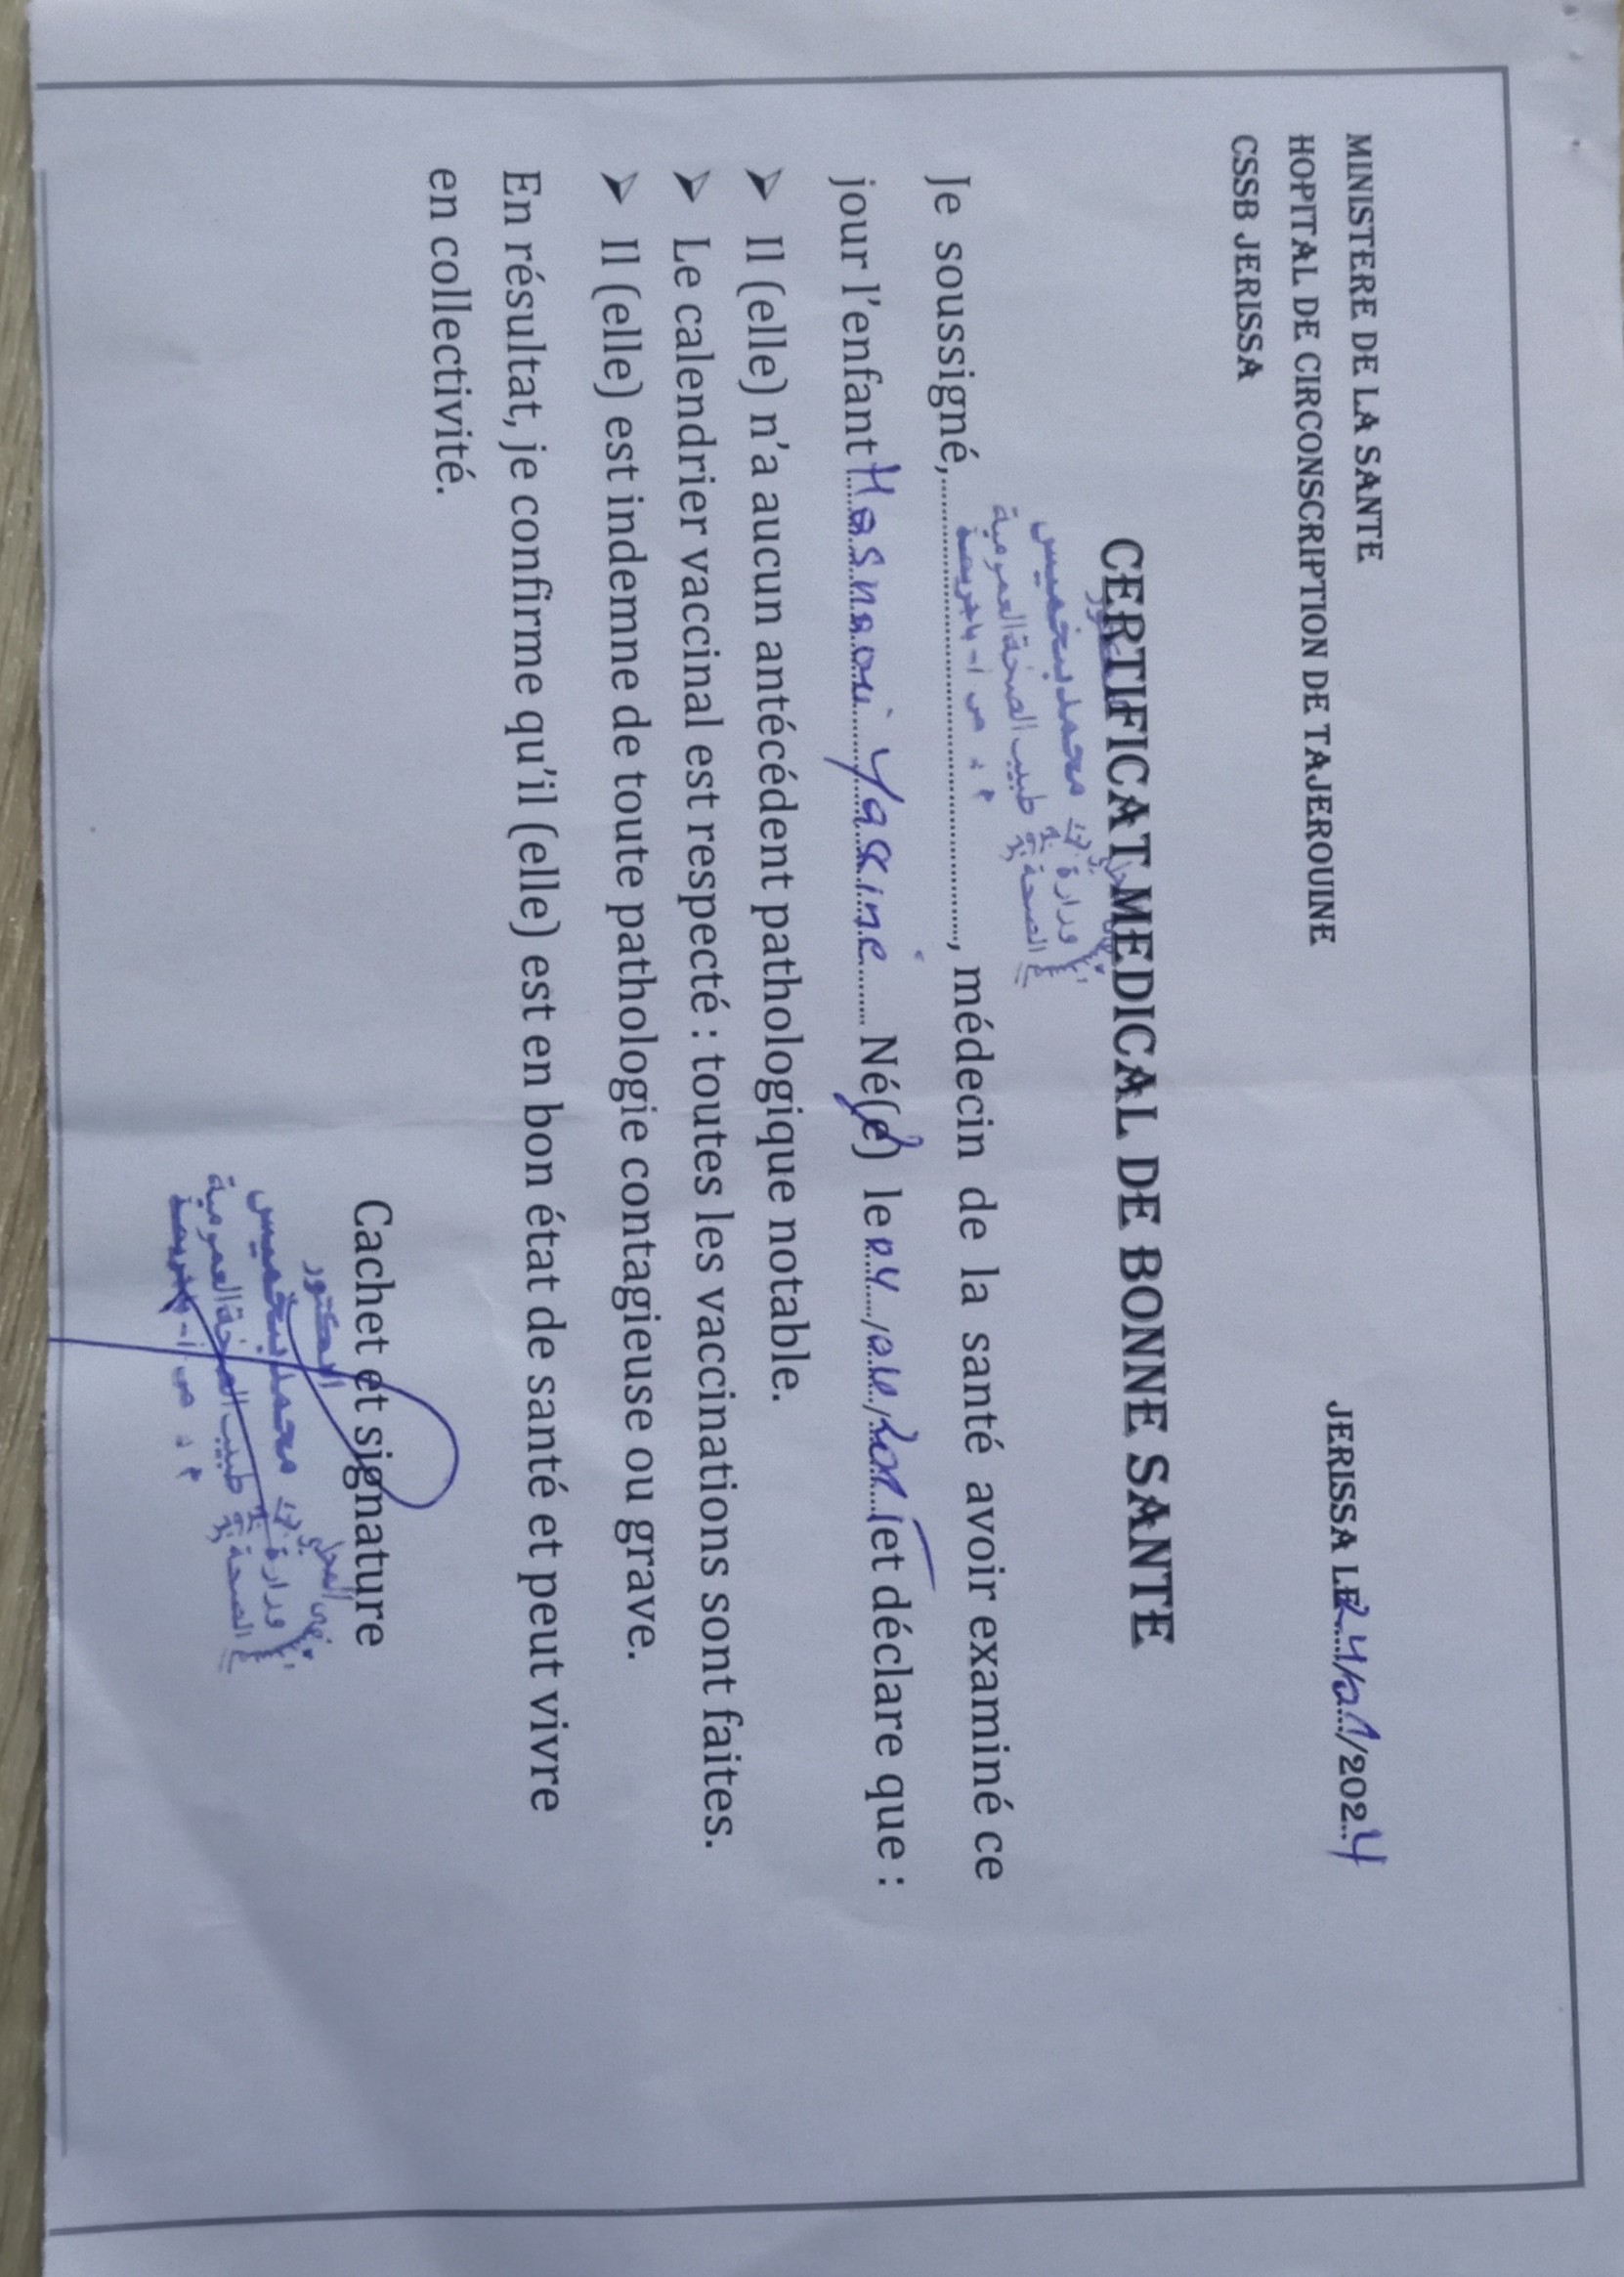 MINISTERE DE LA SANTE
HOPITAL DE CIRCONSCRIPTION DE TAJEROUINE
CSSB JERISSA
JERISSA LE 24/01/2024
CERTIFICAT MEDICAL DE BONNE SANTE
الدكتور
محمد بنخميس
طبيب الصحة العمومية
وزارة الصحة
Je soussigné,........................, médecin de la santé avoir examiné ce
jour l'enfant Hasnaoui Yassine Né(e) le et déclare que :
➢ Il (elle) n'a aucun antécédent pathologique notable.
➢ Le calendrier vaccinal est respecté : toutes les vaccinations sont faites.
➢ Il (elle) est indemne de toute pathologie contagieuse ou grave.
En résultat, je confirme qu'il (elle) est en bon état de santé et peut vivre
en collectivité.
Cachet et signature
الدكتور
محمد بنخميس
طبيب الصحة العمومية
وزارة الصحة